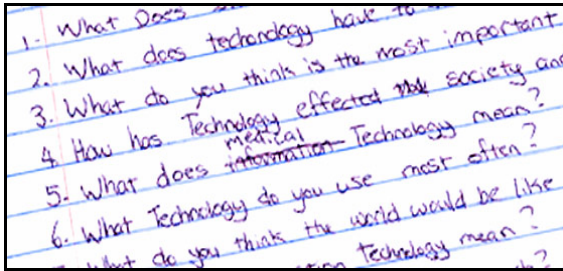 1- What Does
2. What does techondogy have to
3. What do you think is the most important
4. How has Technology effected society and
5. What does medical Technology mean?
6. What Technology do you use most often?
What do you think the world would be like
Technology mean?